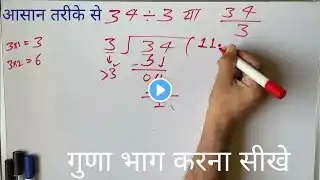 आसान तरीके से 34÷3 या 34/3
3x1=3
3x2=6
3 ) 34 ( 11.
>3
- 3↓
04
2
गुणा भाग करना सीखे